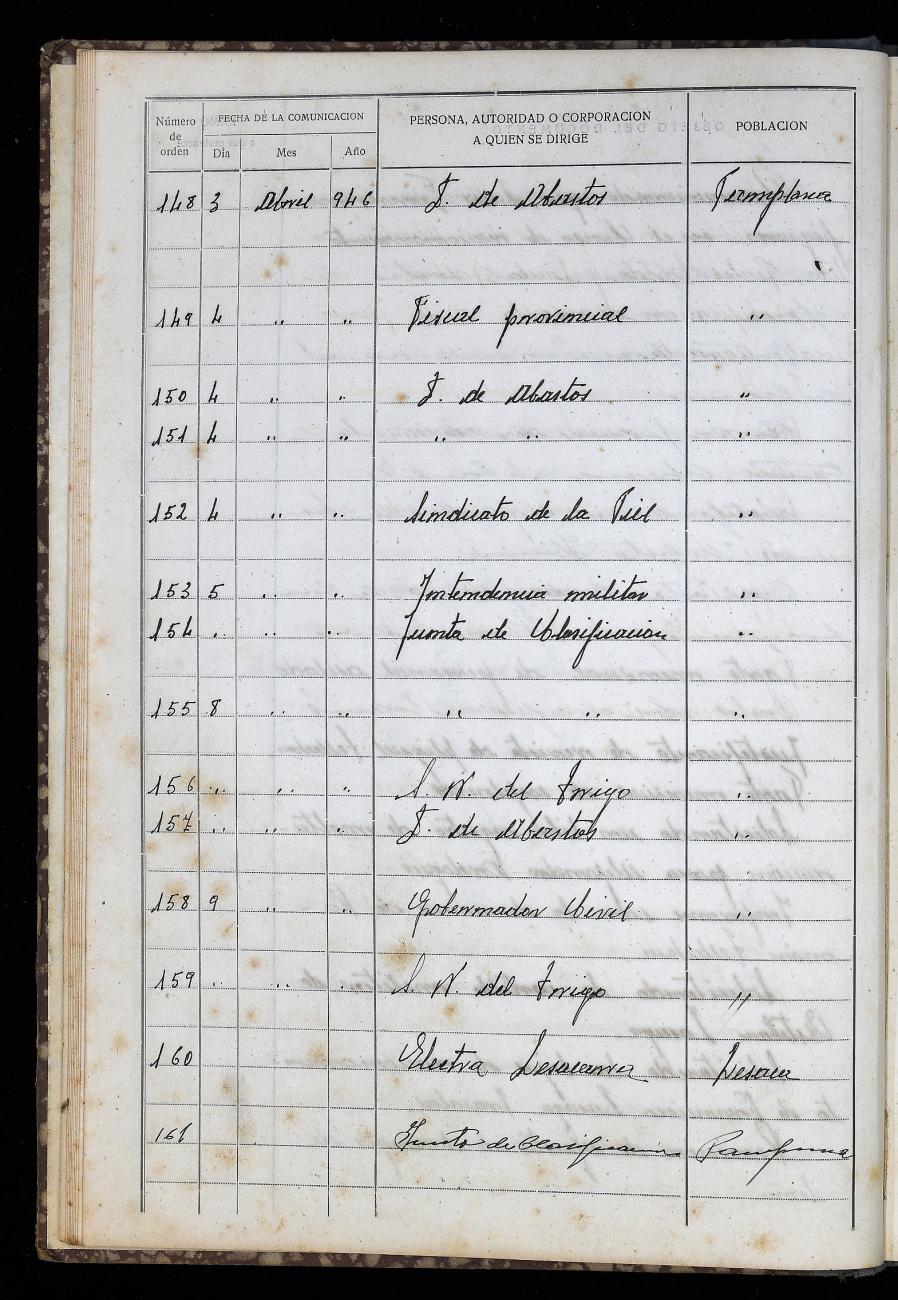 Número de orden | FECHA DE LA COMUNICACION | PERSONA, AUTORIDAD O CORPORACION A QUIEN SE DIRIGE | POBLACION
Día | Mes | Año
148 3 Abril 946 F. de Abastos Pamplona
149 4 " " Fiscal provincial "
150 4 " " F. de Abastos "
151 4 " " " " "
152 4 " " Sindicato de la Piel "
153 5 " " Intendencia militar "
154 " " " Junta de Clasificacion "
155 8 " " " " "
156 " " " S. N. del Trigo "
157 " " " F. de Abastos "
158 9 " " Gobernador Civil "
159 " " " S. N. del Trigo "
160 Electra Lesacarra Lesaca
161 Junta de Clasificacion Pamplona